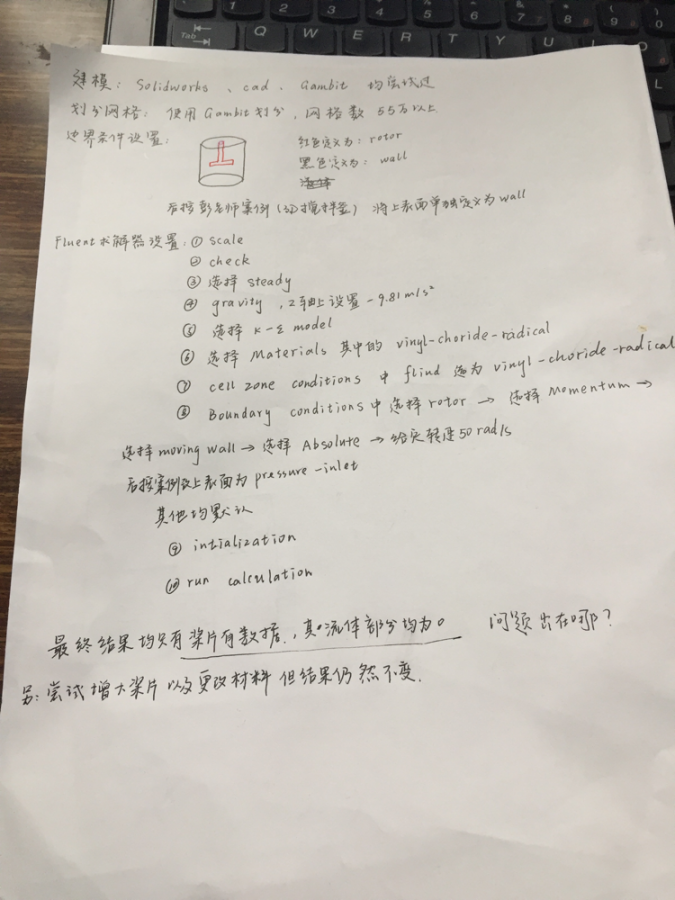 Tab
Q W E R T Y U
建模: Solidworks 、cad 、Gambit 均尝试过
划分网格: 使用Gambit划分, 网格数 55万以上
边界条件设置: 红色定义为: rotor
黑色定义为: wall
后按彭老师案例(3D搅拌釜) 将上表面单独定义为wall
Fluent求解器设置: ① scale
② check
③ 选择 steady
④ gravity , Z轴上设置 -9.81m/s²
⑤ 选择 K-ε model
⑥ 选择 Materials 其中的 vinyl-choride-radical
⑦ cell zone conditions 中 fliud 选为 vinyl-choride-radical
⑧ Boundary conditions中选择rotor → 选择 Momentum →
选择moving wall → 选择 Absolute → 给定转速50 rad/s
后按案例改上表面为pressure-inlet
其他均默认
⑨ intialization
⑩ run calculation
最终结果均只有桨片有数据, 其·流体部分均为0 问题出在哪?
另: 尝试增大桨片以及更改材料但结果仍然不变.